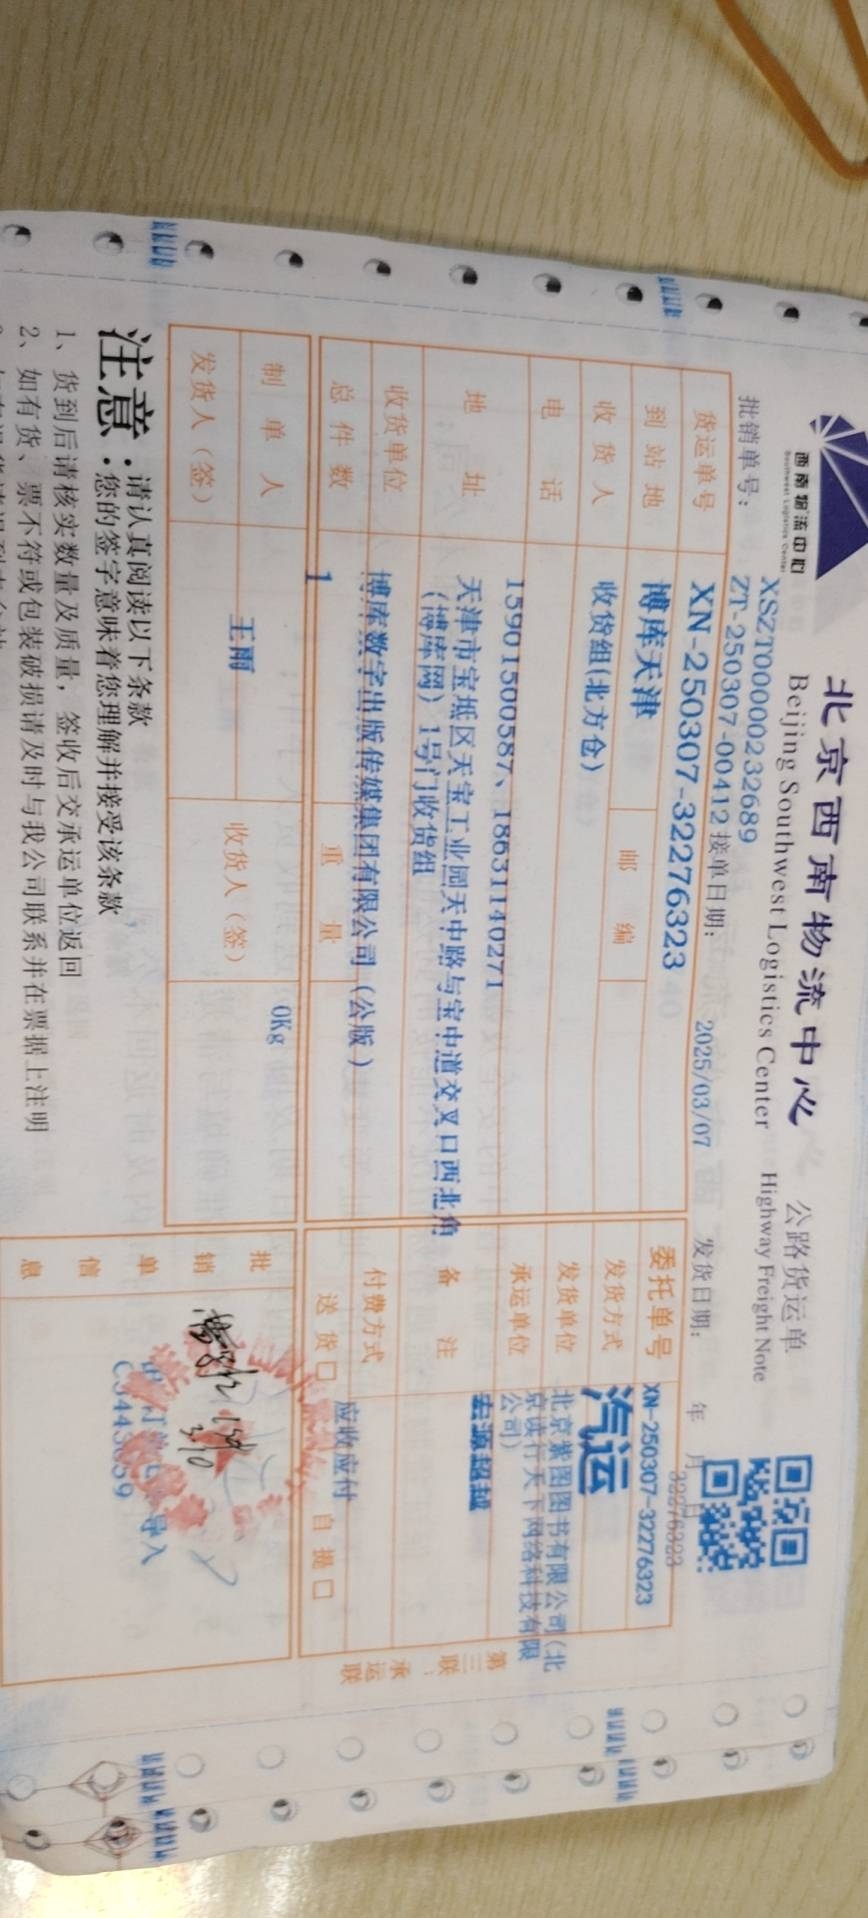 西南物流中心
Southwest Logistics Center
北京西南物流中心 公路货运单
Beijing Southwest Logistics Center Highway Freight Note
批销单号： XSZT00000232689
ZT-250307-00412 接单日期： 2025/03/07 发货日期： 年 月 日
32276323
货运单号 XN-250307-32276323 委托单号 XN-250307-32276323
到站地 博库天津 邮编 发货方式 汽运
收货人 收货组(北方仓) 发货单位 北京紫图图书有限公司(北京读行天下网络科技有限公司)
电话 15901500587、18631140271 承运单位 宏源超越
地址 天津市宝坻区天宝工业园天中路与宝中道交叉口西北角
(博库网) 1号门收货组 备注
收货单位 博库数字出版传媒集团有限公司(公版) 付费方式 应收应付
总件数 1 重量 0Kg 送货□ 自提□
制单人 王雨 收货人(签)
发货人(签)
批销单信息
3.10
导入
第三联：承运联
注意：请认真阅读以下条款
您的签字意味着您理解并接受该条款
1、货到后请核实数量及质量，签收后交承运单位返回
2、如有货、票不符或包装破损请及时与我公司联系并在票据上注明